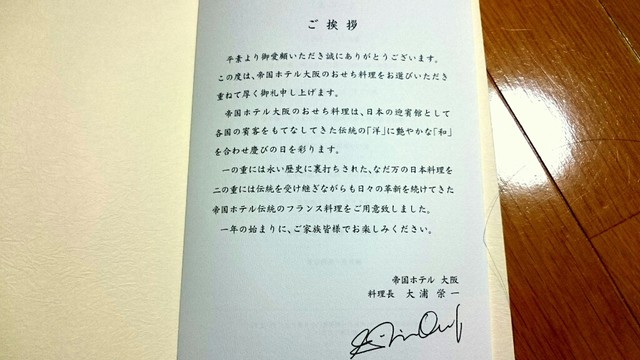 ご挨拶
平素より御愛顧いただき誠にありがとうございます。
この度は、帝国ホテル大阪のおせち料理をお選びいただき
重ねて厚く御礼申し上げます。
帝国ホテル大阪のおせち料理は、日本の迎賓館として
各国の賓客をもてなしてきた伝統の「洋」に艶やかな「和」
を合わせ慶びの日を彩ります。
一の重には永い歴史に裏打ちされた、なだ万の日本料理を
二の重には伝統を受け継ぎながらも日々の革新を続けてきた
帝国ホテル伝統のフランス料理をご用意致しました。
一年の始まりに、ご家族皆様でお楽しみください。
帝国ホテル 大阪
料理長 大浦 栄一